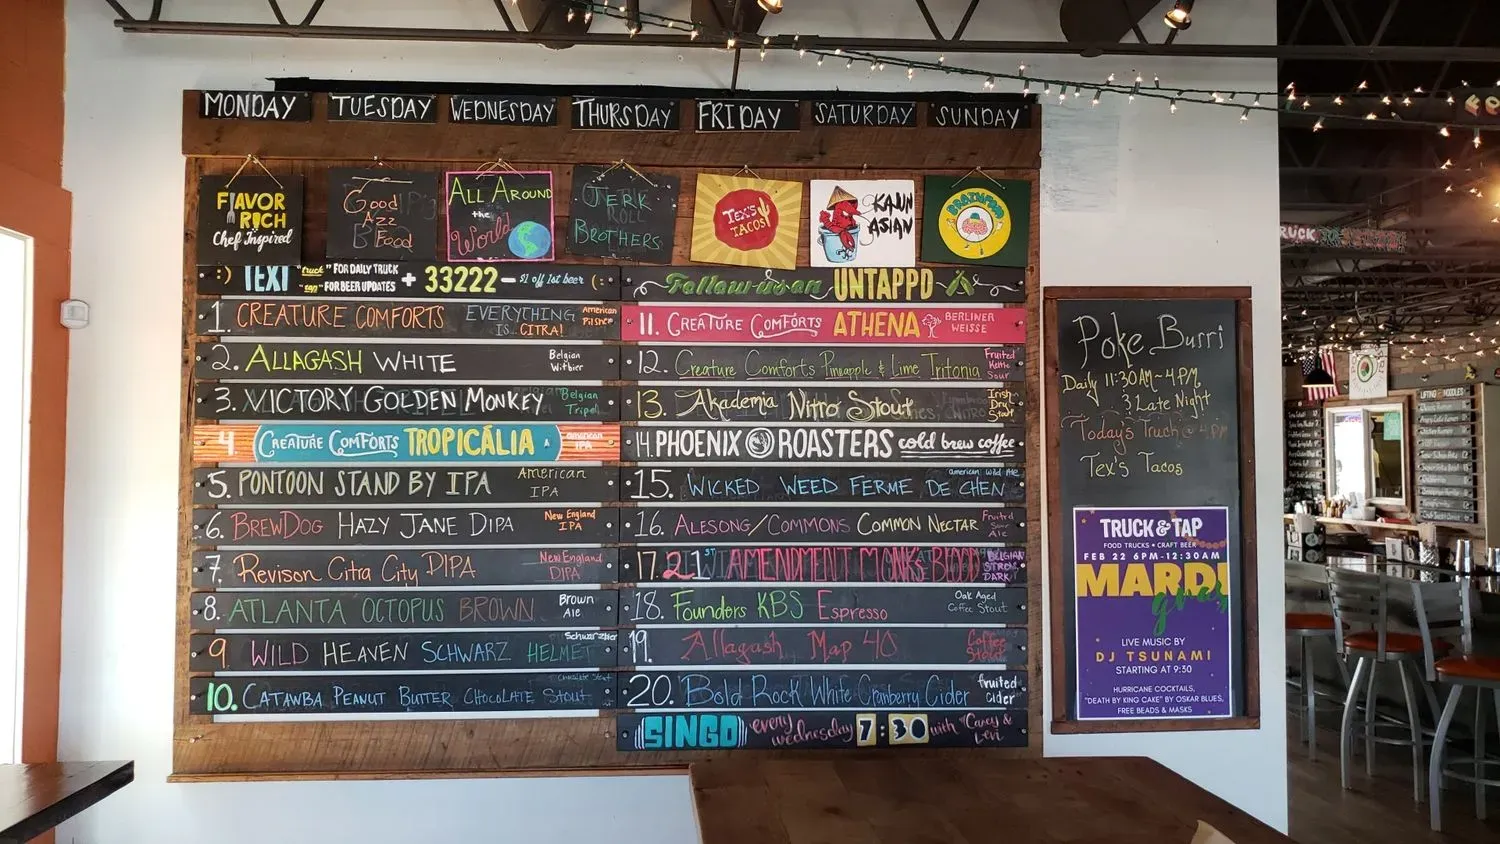 MONDAY TUESDAY WEDNESDAY THURSDAY FRIDAY SATURDAY SUNDAY
FLAVOR
RICH
Chef Inspired
Good
Azz
Food
All Around
the
World
JERK
ROLL
BROTHERS
TEX'S
TACOS
KAJUN
ASIAN
:) TEXT "truck" FOR DAILY TRUCK
"tap" FOR BEER UPDATES + 33222 - $1 off 1st beer (:
Follow us on UNTAPPD
1. CREATURE COMFORTS EVERYTHING
IS... CITRA! American
Pilsner
2. ALLAGASH WHITE Belgian
Witbier
3. VICTORY GOLDEN MONKEY Belgian
Tripel
4. CREATURE COMFORTS TROPICÁLIA american
IPA
5. PONTOON STAND BY IPA American
IPA
6. BREWDOG HAZY JANE DIPA New England
IPA
7. Revison Citra City DIPA New England
DIPA
8. ATLANTA OCTOPUS BROWN Brown
Ale
9. WILD HEAVEN SCHWARZ HELMET Schwarzbier
10. CATAWBA PEANUT BUTTER CHOCOLATE STOUT Chocolate Stout
11. CREATURE COMFORTS ATHENA BERLINER
WEISSE
12. Creature Comforts Pineapple & Lime Tritonia Fruited
Kettle
Sour
13. Akademia Nitro Stout Irish
Dry
Stout
14. PHOENIX ROASTERS cold brew coffee
15. WICKED WEED FERME DE CHEN american wild ale
16. ALESONG/COMMONS COMMON NECTAR Fruited
Sour
Ale
17. 21ST AMENDMENT MONK'S BLOOD BELGIAN
STRONG
DARK
18. Founders KBS Espresso Oak Aged
Coffee Stout
19. Allagash Map 40 Coffee
Stout
20. Bold Rock White Cranberry Cider fruited
cider
SINGO every
wednesday 7:30 with Casey &
Levi
Poke Burri
Daily 11:30AM-4PM
& Late Night
Today's Truck @ 4PM
Tex's Tacos
TRUCK & TAP
FOOD TRUCKS • CRAFT BEER
FEB 22 6PM-12:30AM
MARDI
gras
LIVE MUSIC BY
DJ TSUNAMI
STARTING AT 9:30
HURRICANE COCKTAILS,
"DEATH BY KING CAKE" BY OSKAR BLUES,
FREE BEADS & MASKS